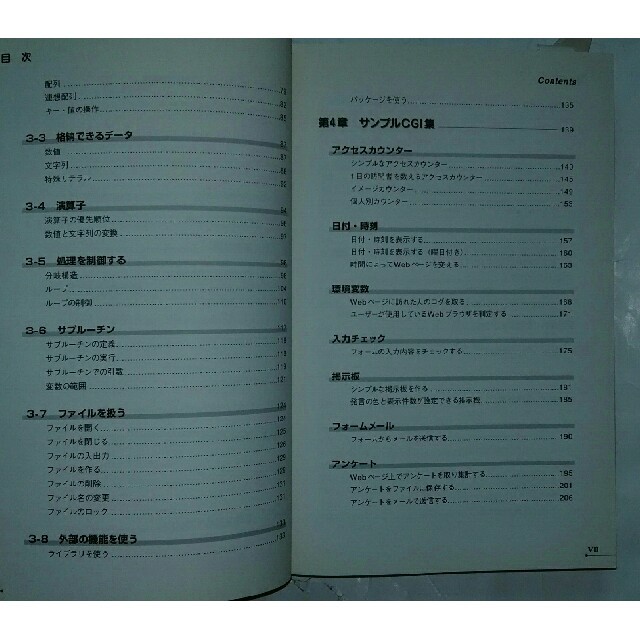 目 次
配列
連想配列
キー・値の操作
3-3 格納できるデータ
数値
文字列
特殊リテラル
3-4 演算子
演算子の優先順位
数値と文字列の変換
3-5 処理を制御する
分岐構造
ループ
ループの制御
3-6 サブルーチン
サブルーチンの定義
サブルーチンの実行
サブルーチンでの引数
変数の範囲
3-7 ファイルを扱う
ファイルを開く
ファイルを閉じる
ファイルの入出力
ファイルを作る
ファイルの削除
ファイル名の変更
ファイルのロック
3-8 外部の機能を使う
ライブラリを使う
Contents
パッケージを使う
第4章 サンプルCGI集
アクセスカウンター
シンプルなアクセスカウンター
1日の訪問者を数えるアクセスカウンター
イメージカウンター
個人別カウンター
日付・時刻
日付・時刻を表示する 157
日付・時刻を表示する（曜日付き） 160
時間によってWebページを変える
環境変数
Webページに訪れた人のログを取る
ユーザーが使用しているWebブラウザを判定する 171
入力チェック
フォームの入力内容をチェックする 175
掲示板
シンプルな掲示板を作る 181
発言の色と表示件数が設定できる掲示板 185
フォームメール
フォームからメールを送信する 190
アンケート
Webページ上でアンケートを取り集計する 195
アンケートをファイルに保存する 201
アンケートをメールで送信する 206
VII